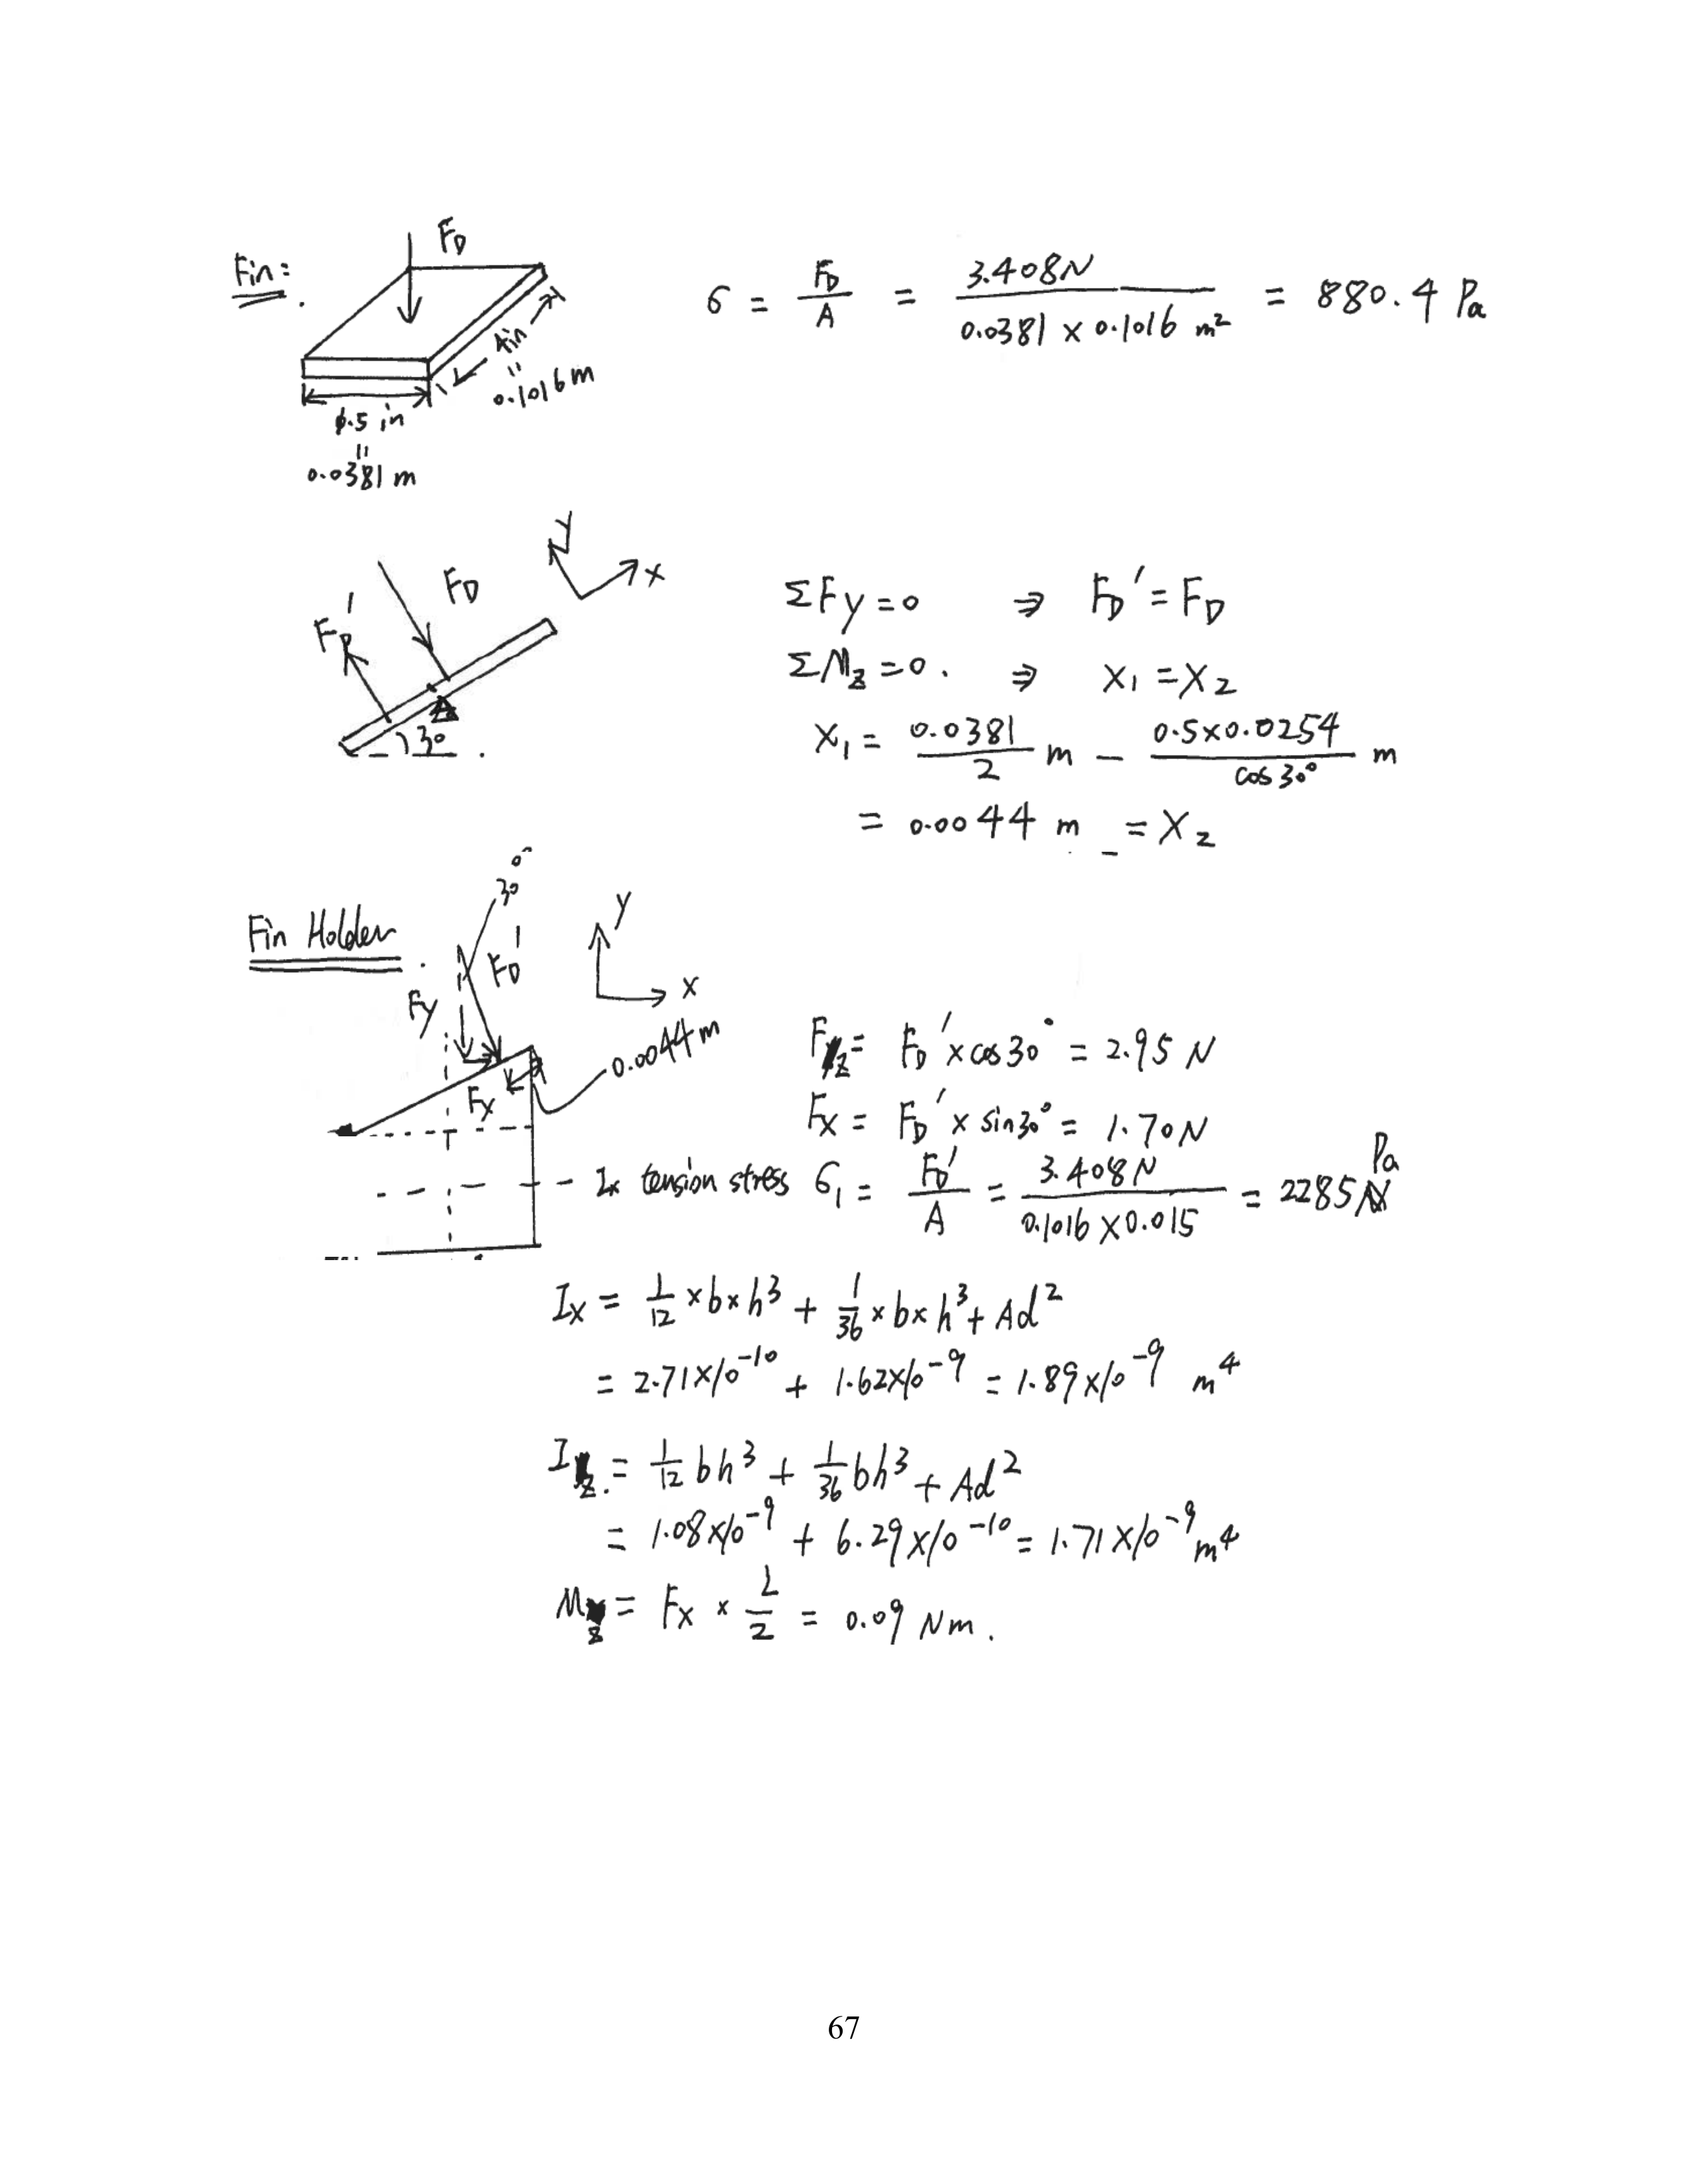 Fin:
F_D
4in
=
0.1016m
1.5 in
=
0.0381 m
6 = F_D / A = 3.408N / 0.0381 × 0.1016 m² = 880.4 Pa
y
x
F_D
F_D'
30
ΣFy=0 ⇒ F_D' = F_D
ΣM_z=0. ⇒ X₁ = X₂
X₁ = 0.0381 / 2 m − 0.5×0.0254 / cos30° m
= 0.0044 m = X₂
Fin Holder
30°
F_D'
Fy
Fx
y
x
0.0044m
F_z = F_D' × cos30° = 2.95 N
Fx = F_D' × sin30° = 1.70N
Ix
tension stress 6₁ = F_D' / A = 3.408N / 0.1016 × 0.015 = 2285 Pa
Ix = 1/12 × b × h³ + 1/36 × b × h³ + Ad²
= 2.71×10⁻¹⁰ + 1.62×10⁻⁹ = 1.89×10⁻⁹ m⁴
I_z. = 1/12 bh³ + 1/36 bh³ + Ad²
= 1.08×10⁻⁹ + 6.29×10⁻¹⁰ = 1.71×10⁻⁹ m⁴
M_z = Fx × L/2 = 0.09 Nm.
67